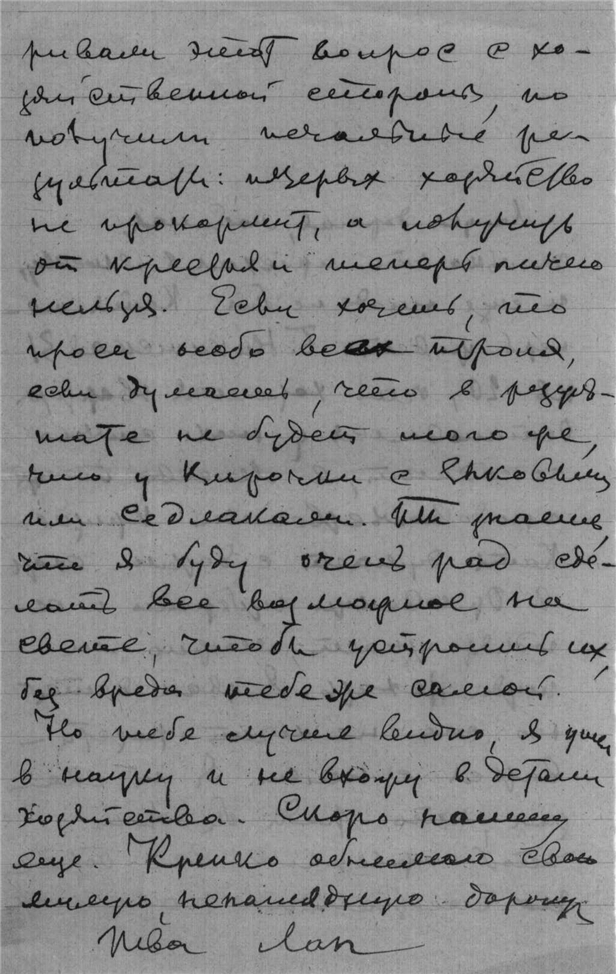 ривали этот вопрос с хо-
зяйственной стороны, но
получили печальные ре-
зультаты: хозяйство
не прокормит, а получить
от и теперь ничего
нельзя. Если хочешь, то
проси особо всех
если думаешь, что в резуль-
тате не будет того же,
что у Кирочки с
или Седлаками. Ты знаешь,
что я буду очень рад сде-
лать все возможное на
свете, чтобы устроить их,
без вреда тебе же самой.
Но тебе лучше видно, я ушел
в науку и не вхожу в детали
хозяйства. Скоро напишу
еще. Крепко обнимаю свою
милую, ненаглядную дорогую
Твой